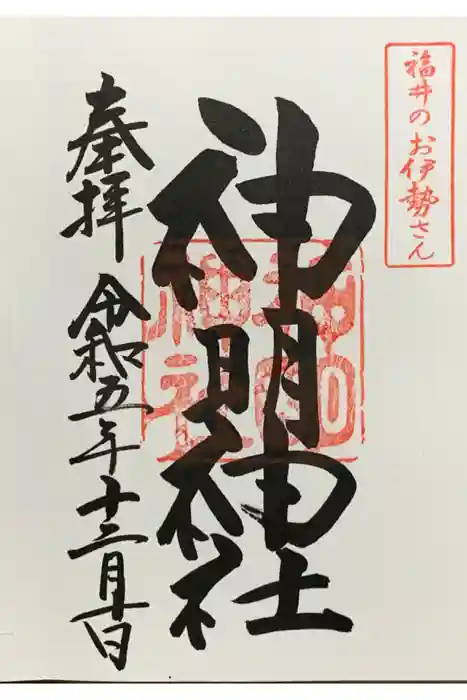 福井のお伊勢さん
神明神社
奉拝 令和五年十二月十日
神明
神社